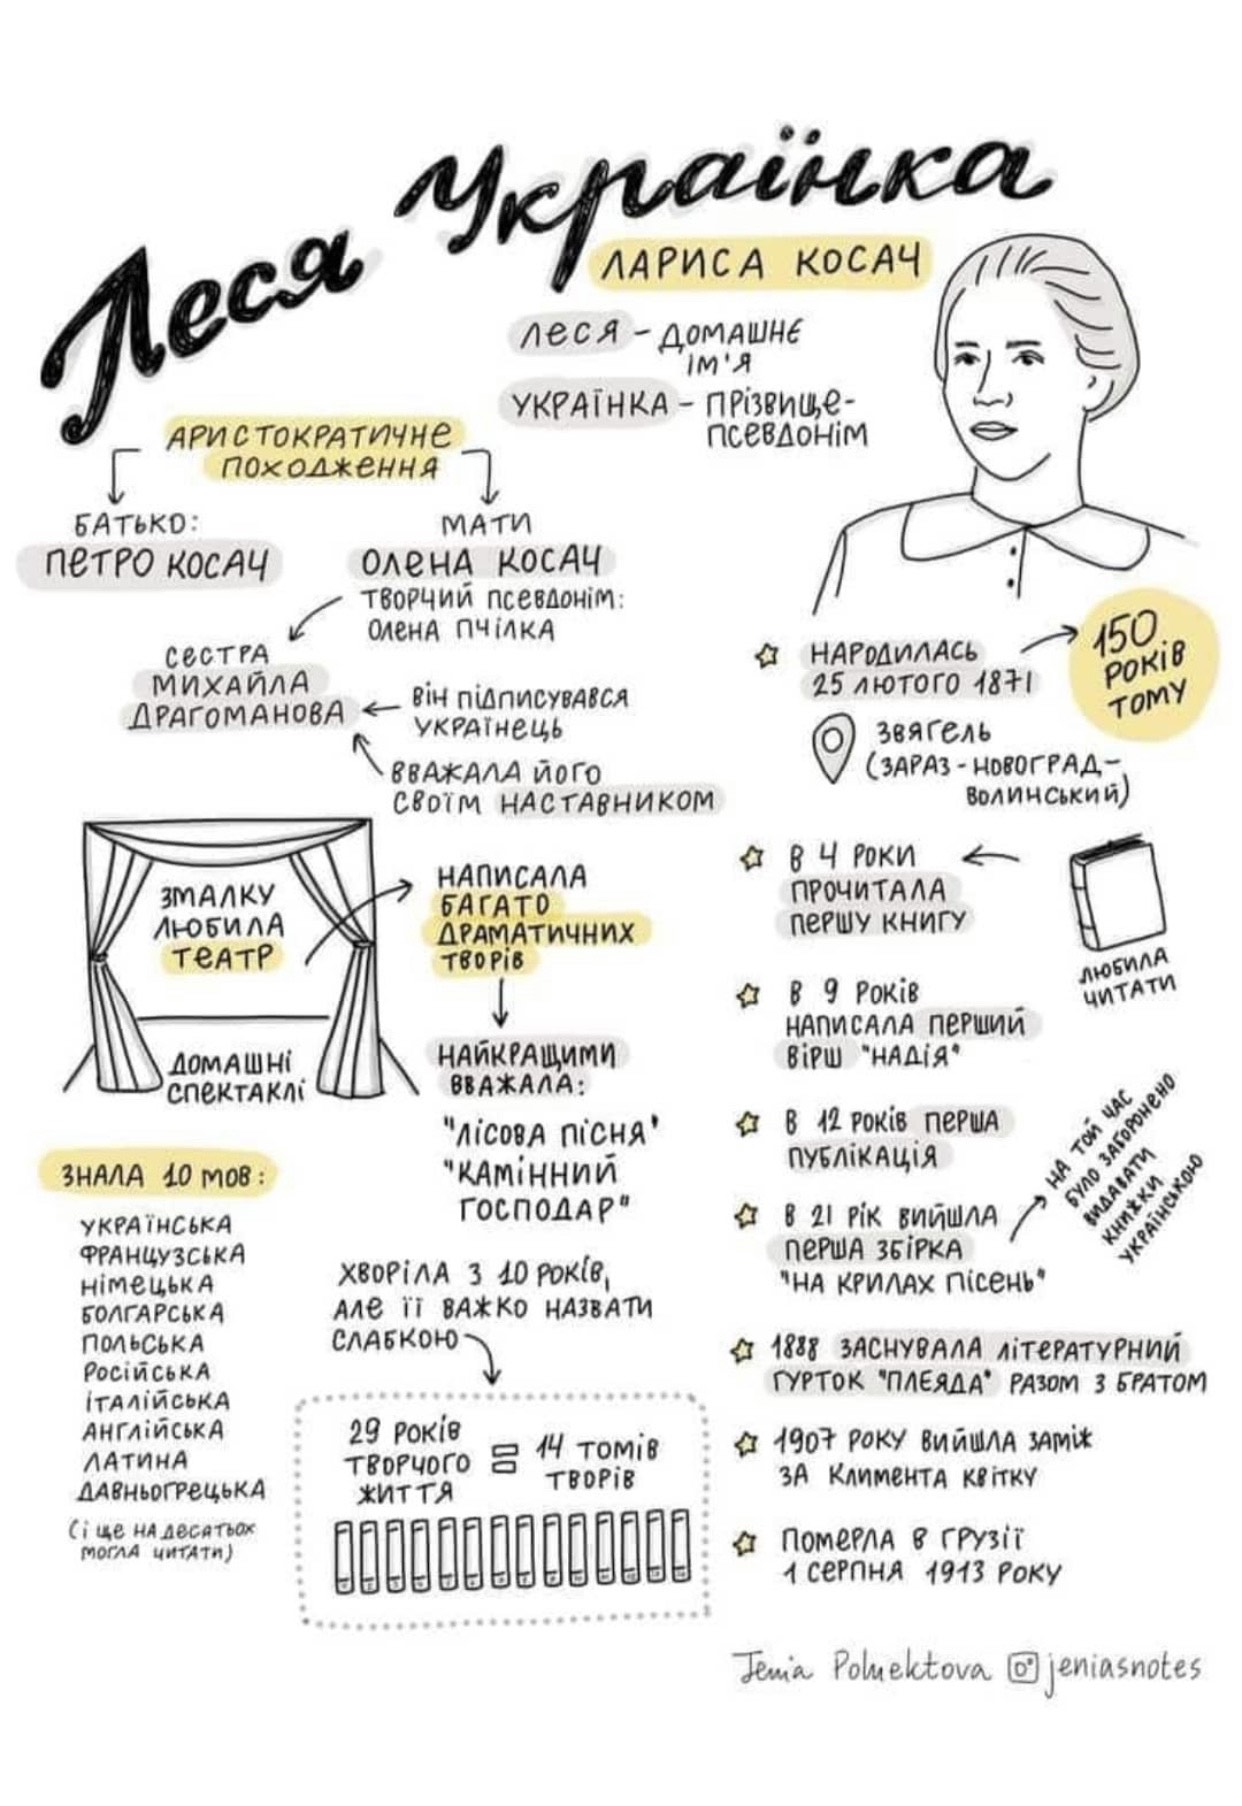 Леся Українка
ЛАРИСА КОСАЧ
ЛЕСЯ - ДОМАШНЄ
ІМ'Я
УКРАЇНКА - ПРІЗВИЩЕ-
ПСЕВДОНІМ
АРИСТОКРАТИЧНЕ
ПОХОДЖЕННЯ
БАТЬКО:
ПЕТРО КОСАЧ
МАТИ
ОЛЕНА КОСАЧ
ТВОРЧИЙ ПСЕВДОНІМ:
ОЛЕНА ПЧІЛКА
СЕСТРА
МИХАЙЛА
ДРАГОМАНОВА
ВІН ПІДПИСУВАВСЯ
УКРАЇНЕЦЬ
ВВАЖАЛА ЙОГО
СВОЇМ НАСТАВНИКОМ
ЗМАЛКУ
ЛЮБИЛА
ТЕАТР
ДОМАШНІ
СПЕКТАКЛІ
НАПИСАЛА
БАГАТО
ДРАМАТИЧНИХ
ТВОРІВ
НАЙКРАЩИМИ
ВВАЖАЛА:
"ЛІСОВА ПІСНЯ"
"КАМІННИЙ
ГОСПОДАР"
ЗНАЛА 10 МОВ:
УКРАЇНСЬКА
ФРАНЦУЗСЬКА
НІМЕЦЬКА
БОЛГАРСЬКА
ПОЛЬСЬКА
РОСІЙСЬКА
ІТАЛІЙСЬКА
АНГЛІЙСЬКА
ЛАТИНА
ДАВНЬОГРЕЦЬКА
(І ЩЕ НА ДЕСЯТЬОХ
МОГЛА ЧИТАТИ)
ХВОРІЛА З 10 РОКІВ,
АЛЕ ЇЇ ВАЖКО НАЗВАТИ
СЛАБКОЮ
29 РОКІВ
ТВОРЧОГО
ЖИТТЯ
=
14 ТОМІВ
ТВОРІВ
НАРОДИЛАСЬ
25 ЛЮТОГО 1871
150
РОКІВ
ТОМУ
ЗВЯГЕЛЬ
(ЗАРАЗ - НОВОГРАД-
ВОЛИНСЬКИЙ)
В 4 РОКИ
ПРОЧИТАЛА
ПЕРШУ КНИГУ
ЛЮБИЛА
ЧИТАТИ
В 9 РОКІВ
НАПИСАЛА ПЕРШИЙ
ВІРШ "НАДІЯ"
В 12 РОКІВ ПЕРША
ПУБЛІКАЦІЯ
В 21 РІК ВИЙШЛА
ПЕРША ЗБІРКА
"НА КРИЛАХ ПІСЕНЬ"
НА ТОЙ ЧАС
БУЛО ЗАБОРОНЕНО
ВИДАВАТИ
КНИЖКИ
УКРАЇНСЬКОЮ
1888 ЗАСНУВАЛА ЛІТЕРАТУРНИЙ
ГУРТОК "ПЛЕЯДА" РАЗОМ З БРАТОМ
1907 РОКУ ВИЙШЛА ЗАМІЖ
ЗА КЛИМЕНТА КВІТКУ
ПОМЕРЛА В ГРУЗІЇ
1 СЕРПНЯ 1913 РОКУ
Jenia Poluektova jeniasnotes